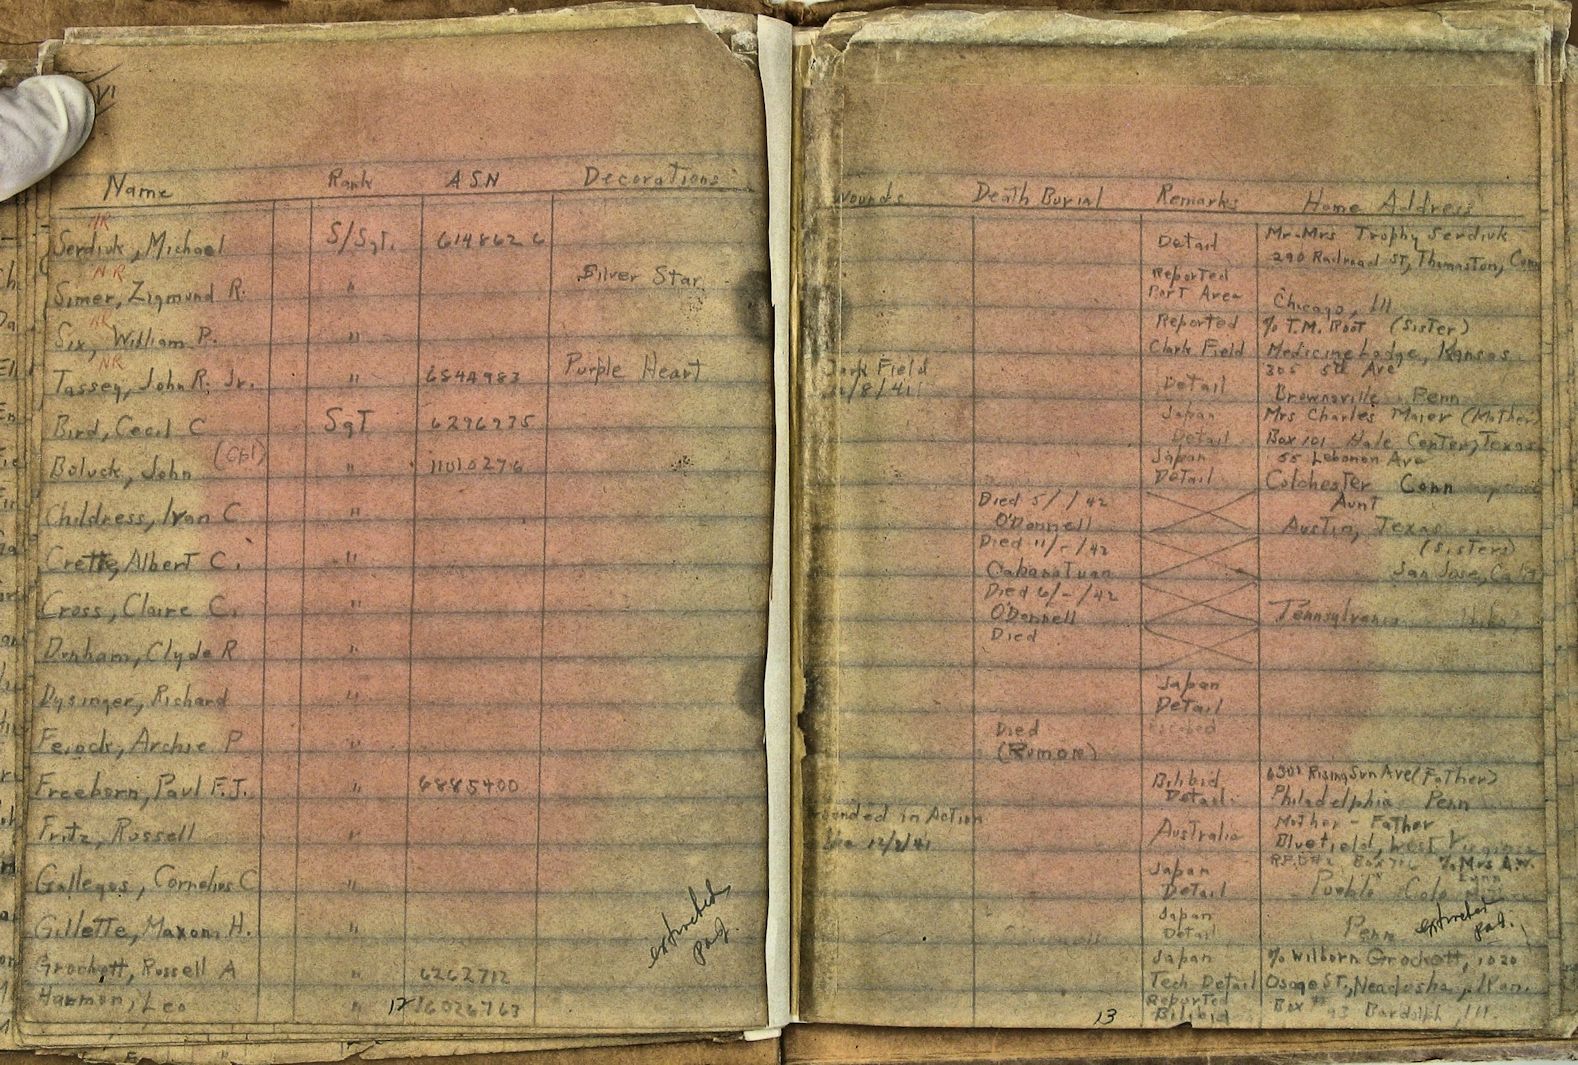 VI
Name Rank ASN Decorations
NR
Serdiuk, Michael S/Sgt. 6148626
NR
Simer, Zigmund R. " Silver Star
NR
Six, William P. "
NR
Tassey, John R. Jr. " 6844983 Purple Heart
Bird, Cecil C Sgt 6296935
(Cpl)
Boluck, John " 11010276
Childress, Ivan C. "
Crette, Albert C. "
Cross, Claire C. "
Denham, Clyde R "
Dysinger, Richard "
Feiock, Archie P "
Freeborn, Paul F.J. " 6885400
Fritz, Russell "
Gallegos, Cornelius C "
Gillette, Maxon H. "
Grockett, Russell A " 6262712
Harmon, Leo " 16026763
extracted
pag.
12
Wounds Death Burial Remarks Home Address
Mr-Mrs Trophy Serdiuk
Detail 290 Railroad St, Thomaston, Conn
Reported
Port Area Chicago, Ill
Reported % T.M. Root (Sister)
Clark Field Medicine Lodge, Kansas
Clark Field 305 5th Ave
/8/41 Detail Brownsville Penn
Japan Mrs Charles Maier (Mother
Detail Box 101 Hale Center, Texas
Japan 55 Lebanon Ave
Detail Colchester Conn
Died 5/ /42 Aunt
O'Donnell Austin, Texas
Died 11/-/42 (Sisters)
Cabanatuan San Jose, Calif
Died 6/-/42
O'Donnell Pennsylvania
Died
Japan
Detail
Died Escaped
(Rumor)
Bilibid 6301 Rising Sun Ave (Father)
Detail. Philadelphia Penn
Wounded in Action Mother - Father
12/8/41 Australia Bluefield, West Virginia
Japan R.F.D #2 Box 716 % Mrs A.W.
Lynn
Detail Pueblo Colo
Japan
Detail Penn
extracted
pag.
Japan % Wilborn Grockett, 1020
Tech Detail Osage St., Neodesha, Kan.
Reported Box # 93 Bardolph, Ill.
Bilibid
13